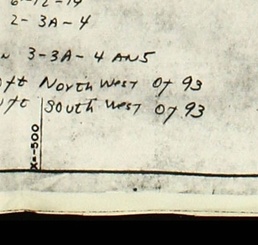 2-3A-4
3-3A-4 AN5
ft North West Of 93
ft South West Of 93
X=-500